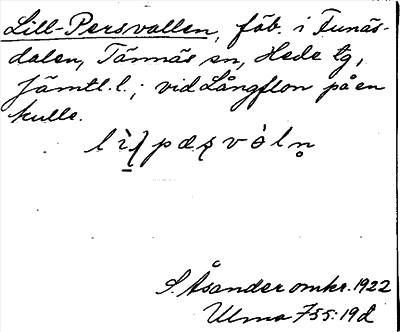 Lill-Persvallen, fäb. i Funäs-
dalen, Tännäs sn, Hede tg,
Jämtl. l.; vid Långflon på en
kulle.
S. Åsander omkr. 1922
Ulma 755:19d